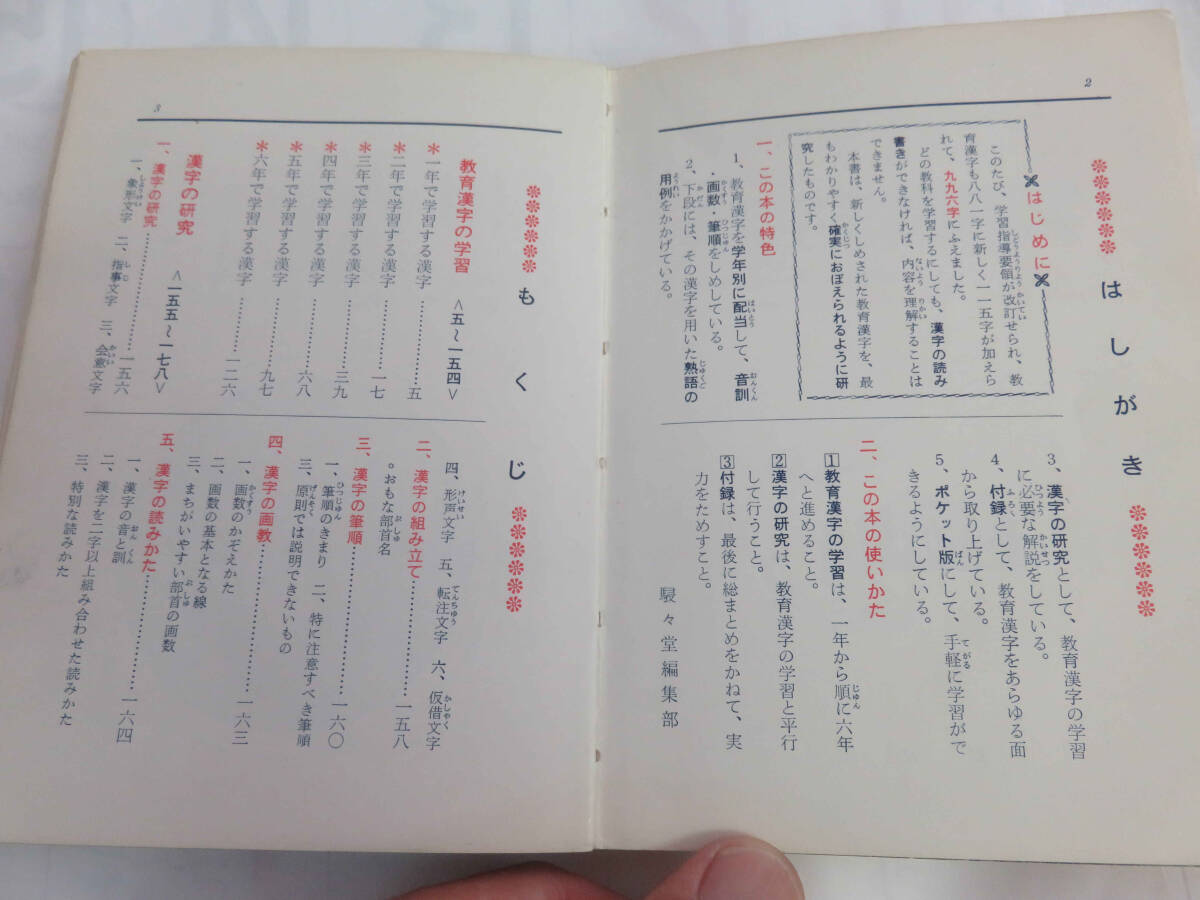 2
はしがき
はじめに
このたび、学習指導要領が改訂せられ、教
育漢字も八八一字に新しく一一五字が加えら
れて、九九六字にふえました。
どの教科を学習するにしても、漢字の読み
書きができなければ、内容を理解することは
できません。
本書は、新しくしめされた教育漢字を、最
もわかりやすく確実におぼえられるように研
究したものです。
一、この本の特色
1、教育漢字を学年別に配当して、音訓
・画数・筆順をしめしている。
2、下段には、その漢字を用いた熟語の
用例をかかげている。
3、漢字の研究として、教育漢字の学習
に必要な解説をしている。
4、付録として、教育漢字をあらゆる面
から取り上げている。
5、ポケット版にして、手軽に学習がで
きるようにしている。
二、この本の使いかた
1教育漢字の学習は、一年から順に六年
へと進めること。
2漢字の研究は、教育漢字の学習と平行
して行うこと。
3付録は、最後に総まとめをかねて、実
力をためすこと。
駸々堂編集部
3
もくじ
教育漢字の学習 <五〜一五四>
*一年で学習する漢字……五
*二年で学習する漢字……一七
*三年で学習する漢字……三九
*四年で学習する漢字……六八
*五年で学習する漢字……九七
*六年で学習する漢字……一二六
漢字の研究 <一五五〜一七八>
一、漢字の研究……一五六
一、象形文字 二、指事文字 三、会意文字
四、形声文字 五、転注文字 六、仮借文字
二、漢字の組み立て……一五八
。おもな部首名
三、漢字の筆順……一六〇
一、筆順のきまり 二、特に注意すべき筆順
三、原則では説明できないもの
四、漢字の画教……一六三
一、画数のかぞえかた
二、画数の基本となる線
三、まちがいやすい部首の画数
五、漢字の読みかた……一六四
一、漢字の音と訓
二、漢字を二字以上組み合わせた読みかた
三、特別な読みかた